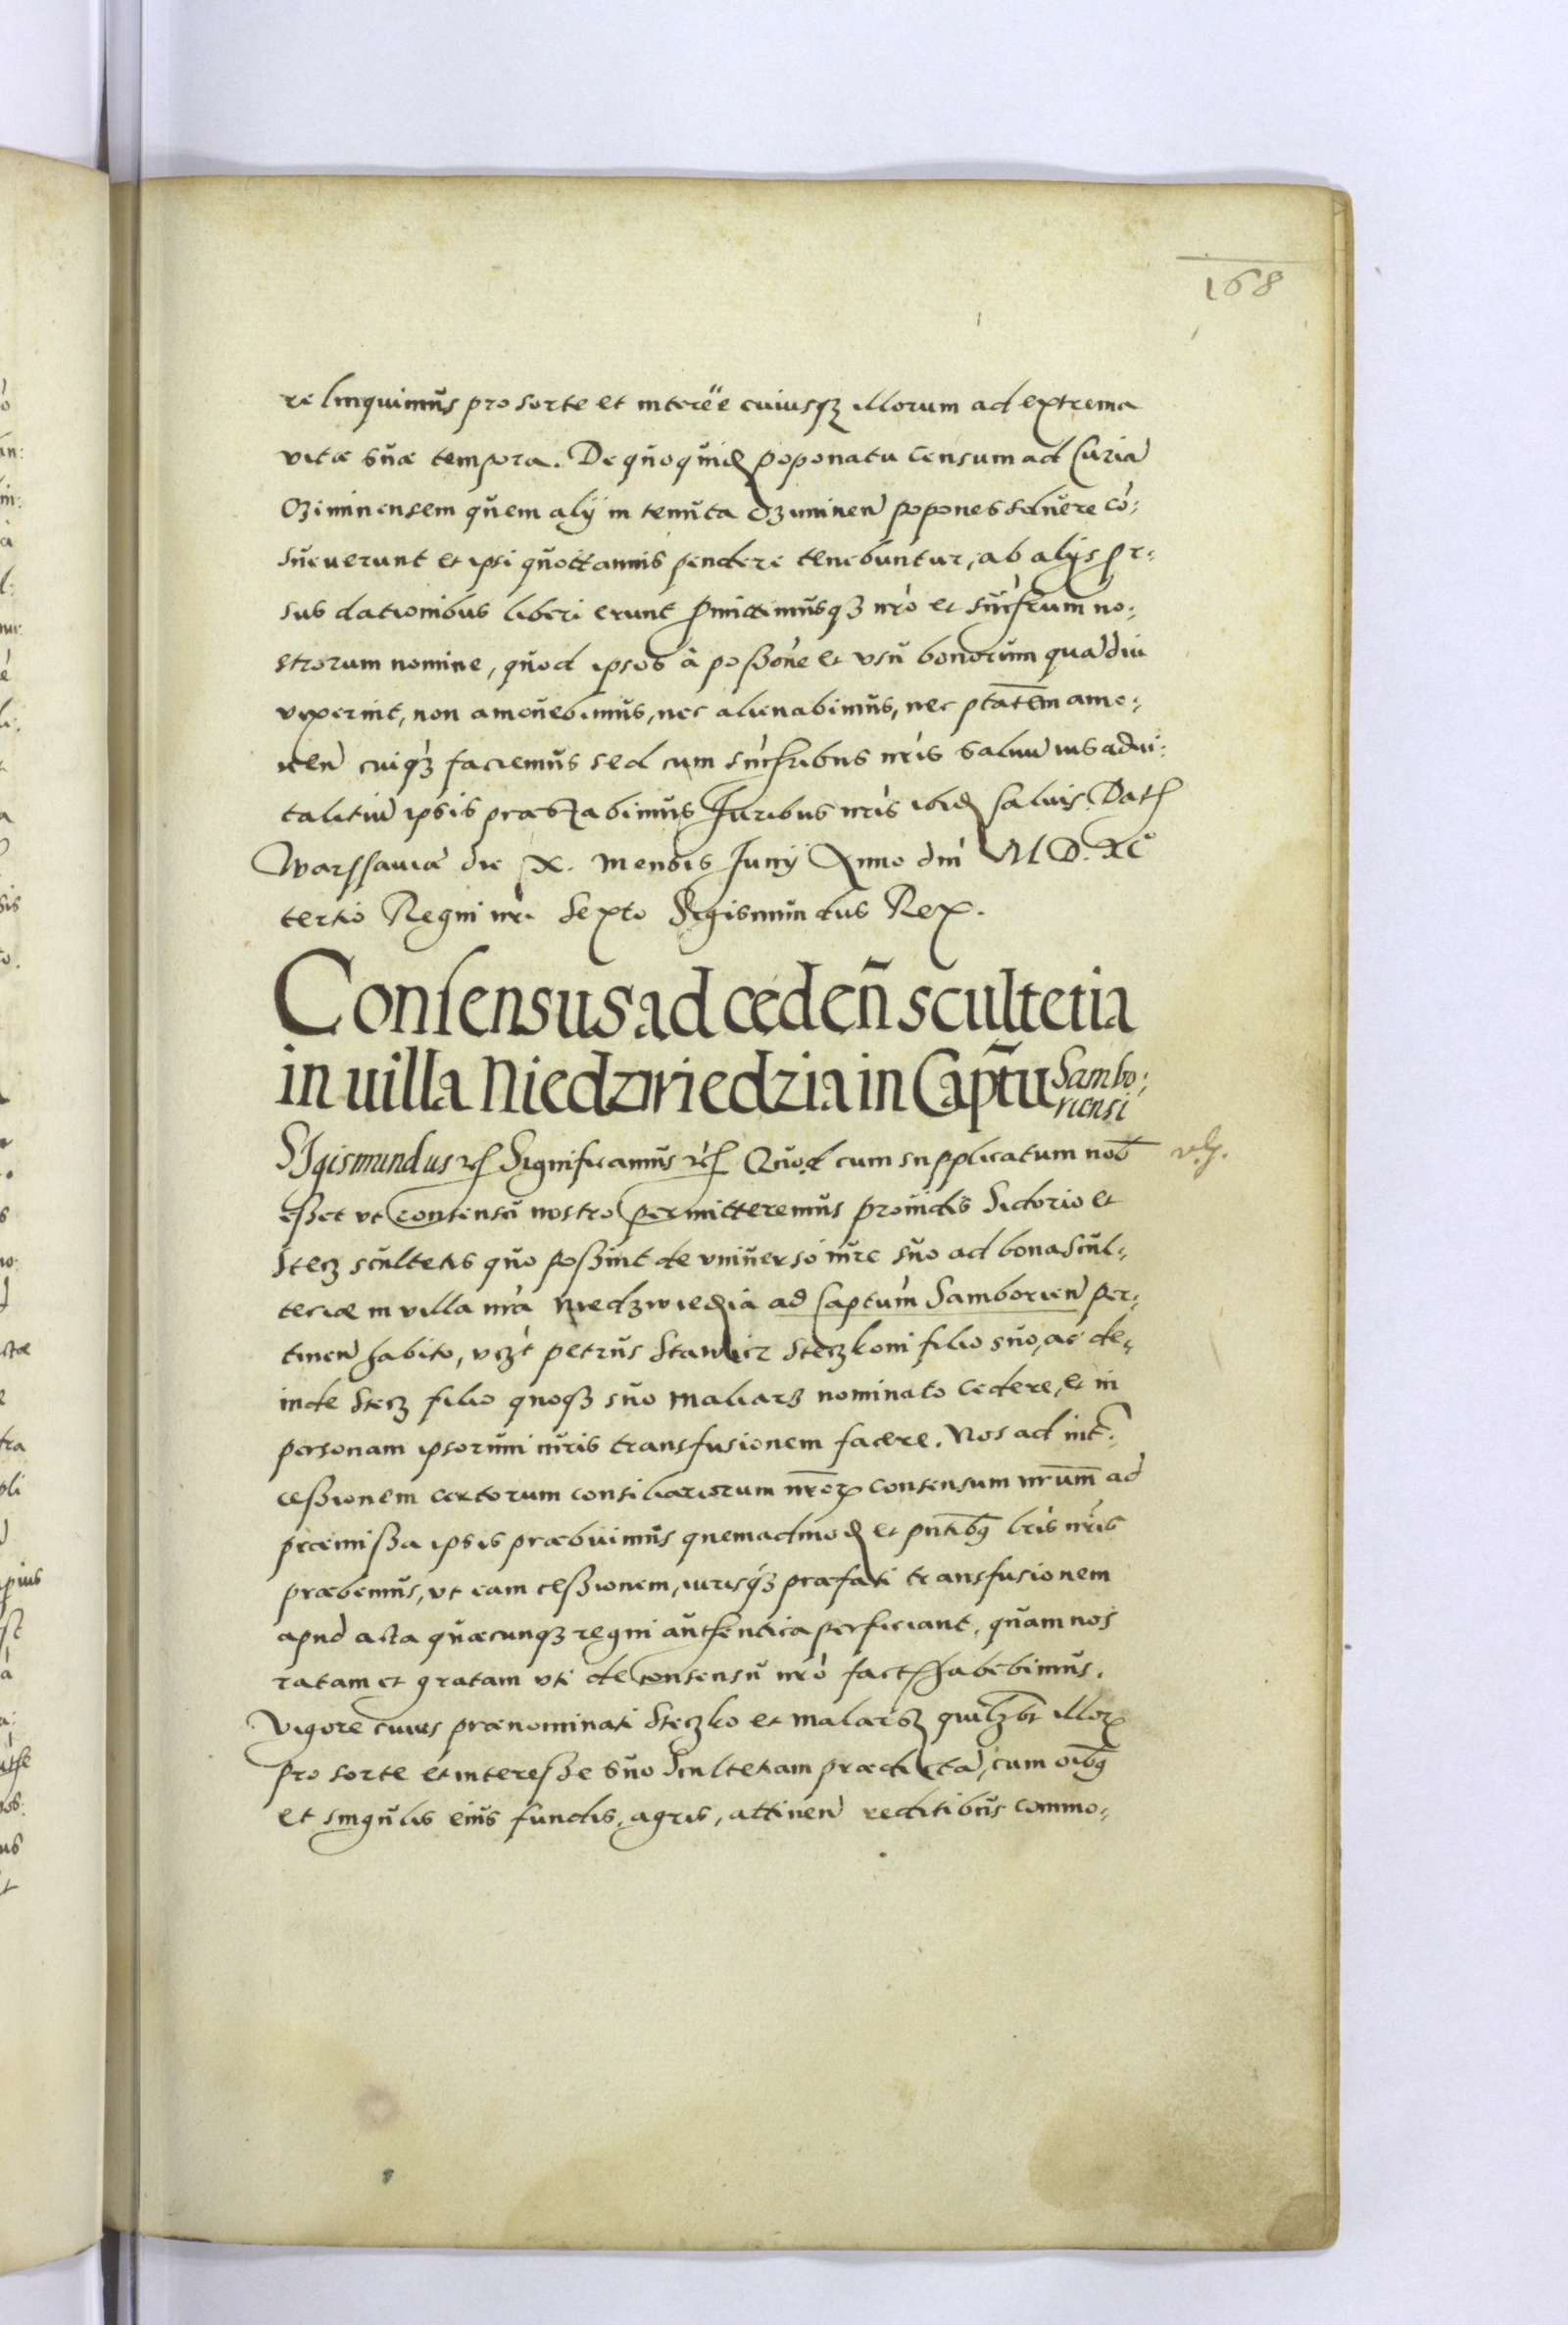 168
relinquimus pro sorte et interëe cuiusqꝫ illorum ad extrema
vitæ suæ tempora. De quoquidē poponatu censum ad Curiā
Oziminensem quem alÿ in tenuta Ozyminen̄ popones soluere cō:
sueuerunt et ipsi quottannis pendere tenebuntur, ab alijs pr:
sus dationibus liberi erunt ꝓmittimusqꝫ nr̄o et succ̄rum no:
strorum nomine, quod ipsos â poss̄one et vsu bonorum quādiu
vixerint, non amouebimus, nec alienabimus, nec ptatēm amo:
uen̄ cuiqꝫ faciemus sed cum succ̄ribus nr̄is saluū ius aduī:
talitiū ipsis præstabimus Juribus nr̄is ibid̄ saluis Datꝭ
Warssauiæ die X. mensis Junÿ Anno dn̄i M D. XC
tertio Regni nr̄i Sexto Sigismundus Rex.
Consensus ad ceden̄ scultetia
in uilla Niedzwiedzia in Captu Sambo:
riensi
SIgismundus rꝭ Significamus rꝭ Quod cum supplicatum nob̄
esset vt consensu nostro permitteremus prouidis Sidorio et
Stecz scultetis quo possint de vniuerso iure suo ad bona Scul:
tetiæ in villa nr̄a Niedzwiedzia ad Captum Samborien̄ per:
tinen̄ habito, vcꝫt petrus Stawicz Steczkoni filio suo, ac de:
inde Stecz filio quoqꝫ suo maliarz nominato cedere, et in
personam ipsorum iuris transfusionem facere. Nos ad int̄:
cessionem certorum consiliariorum nr̄orꝫ consensum nr̄um ad
præmissa ipsis præbuimus quemadmod̄ et pn̄tibꝫ lr̄is nr̄is
præbemus, vt eam cessionem, iurisqꝫ præfati transfusionem
apud acta quæcunqꝫ regni authentica perficiant, quam nos
ratam et gratam vti de consensu nr̄o factꝭ habebimus.
Vigore cuius prænominati Steczko et malarz quilꝫbt illorꝫ
pro sorte et interesse suo Scultetiam prædictā, cum oībꝫ
et singulis eius fundis, agris, attinen̄ reditibus commo: